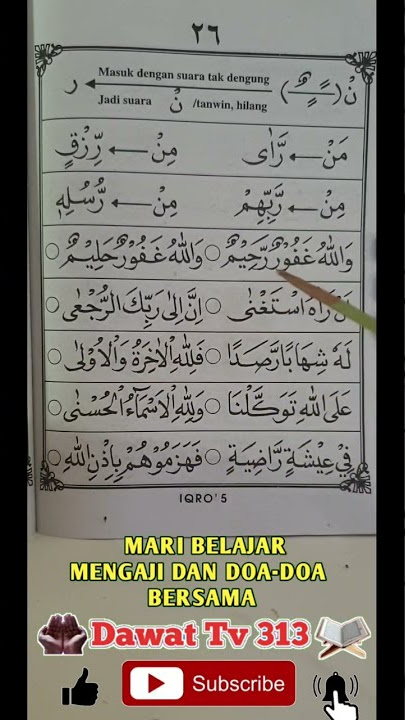 ٢٦
نْ (ـًـٍـٌ) ← ر
Masuk dengan suara tak dengung
Jadi suara نْ /tanwin, hilang
مَنْ ← رَّاٰى مِنْ ← رِّزْقٍ
مِنْ ← رَّبِّهِمْ مِنْ ← رُّسُلِهٖ
وَاللّٰهُ غَفُوْرٌ رَّحِيْمٌ ○ وَاللّٰهُ غَفُوْرٌ حَلِيْمٌ ○
اَنْ رَّاٰهُ اسْتَغْنٰى ○ اِنَّ اِلٰى رَبِّكَ الرُّجْعٰى ○
لَهٗ شِهَابًا رَّصَدًا ○ فَلِلّٰهِ الْاٰخِرَةُ وَالْاُوْلٰى ○
عَلَى اللّٰهِ تَوَكَّلْنَا ○ وَلِلّٰهِ الْاَسْمَآءُ الْحُسْنٰى ○
فِيْ عِيْشَةٍ رَّاضِيَةٍ ○ فَهَزَمُوْهُمْ بِاِذْنِ اللّٰهِ ○
IQRO'5
MARI BELAJAR
MENGAJI DAN DOA-DOA
BERSAMA
Dawat Tv 313
Subscribe